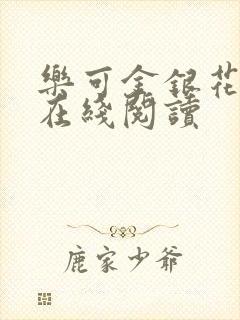 樂可金銀花
在綫閱讀
鹿家少爺